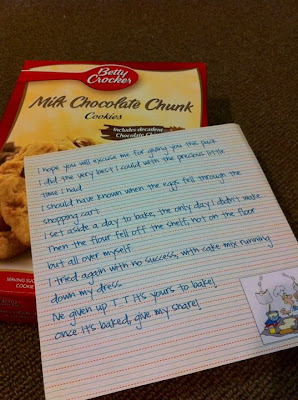 Betty
Crocker
Milk Chocolate Chunk
Cookies
Includes decadent
Chocolate
I hope you will excuse me for giving you this past
I did the very best I could with the precious little
time I had
I should have known when the eggs fell through the
shopping cart
I set aside a day to bake, the only day I didn't wake
Then the flour fell off the shelf, not on the floor
but all over myself
I tried again with no success, with cake mix running
down my dress
I've given up T T It's yours to bake!
Once it's baked, give my share!